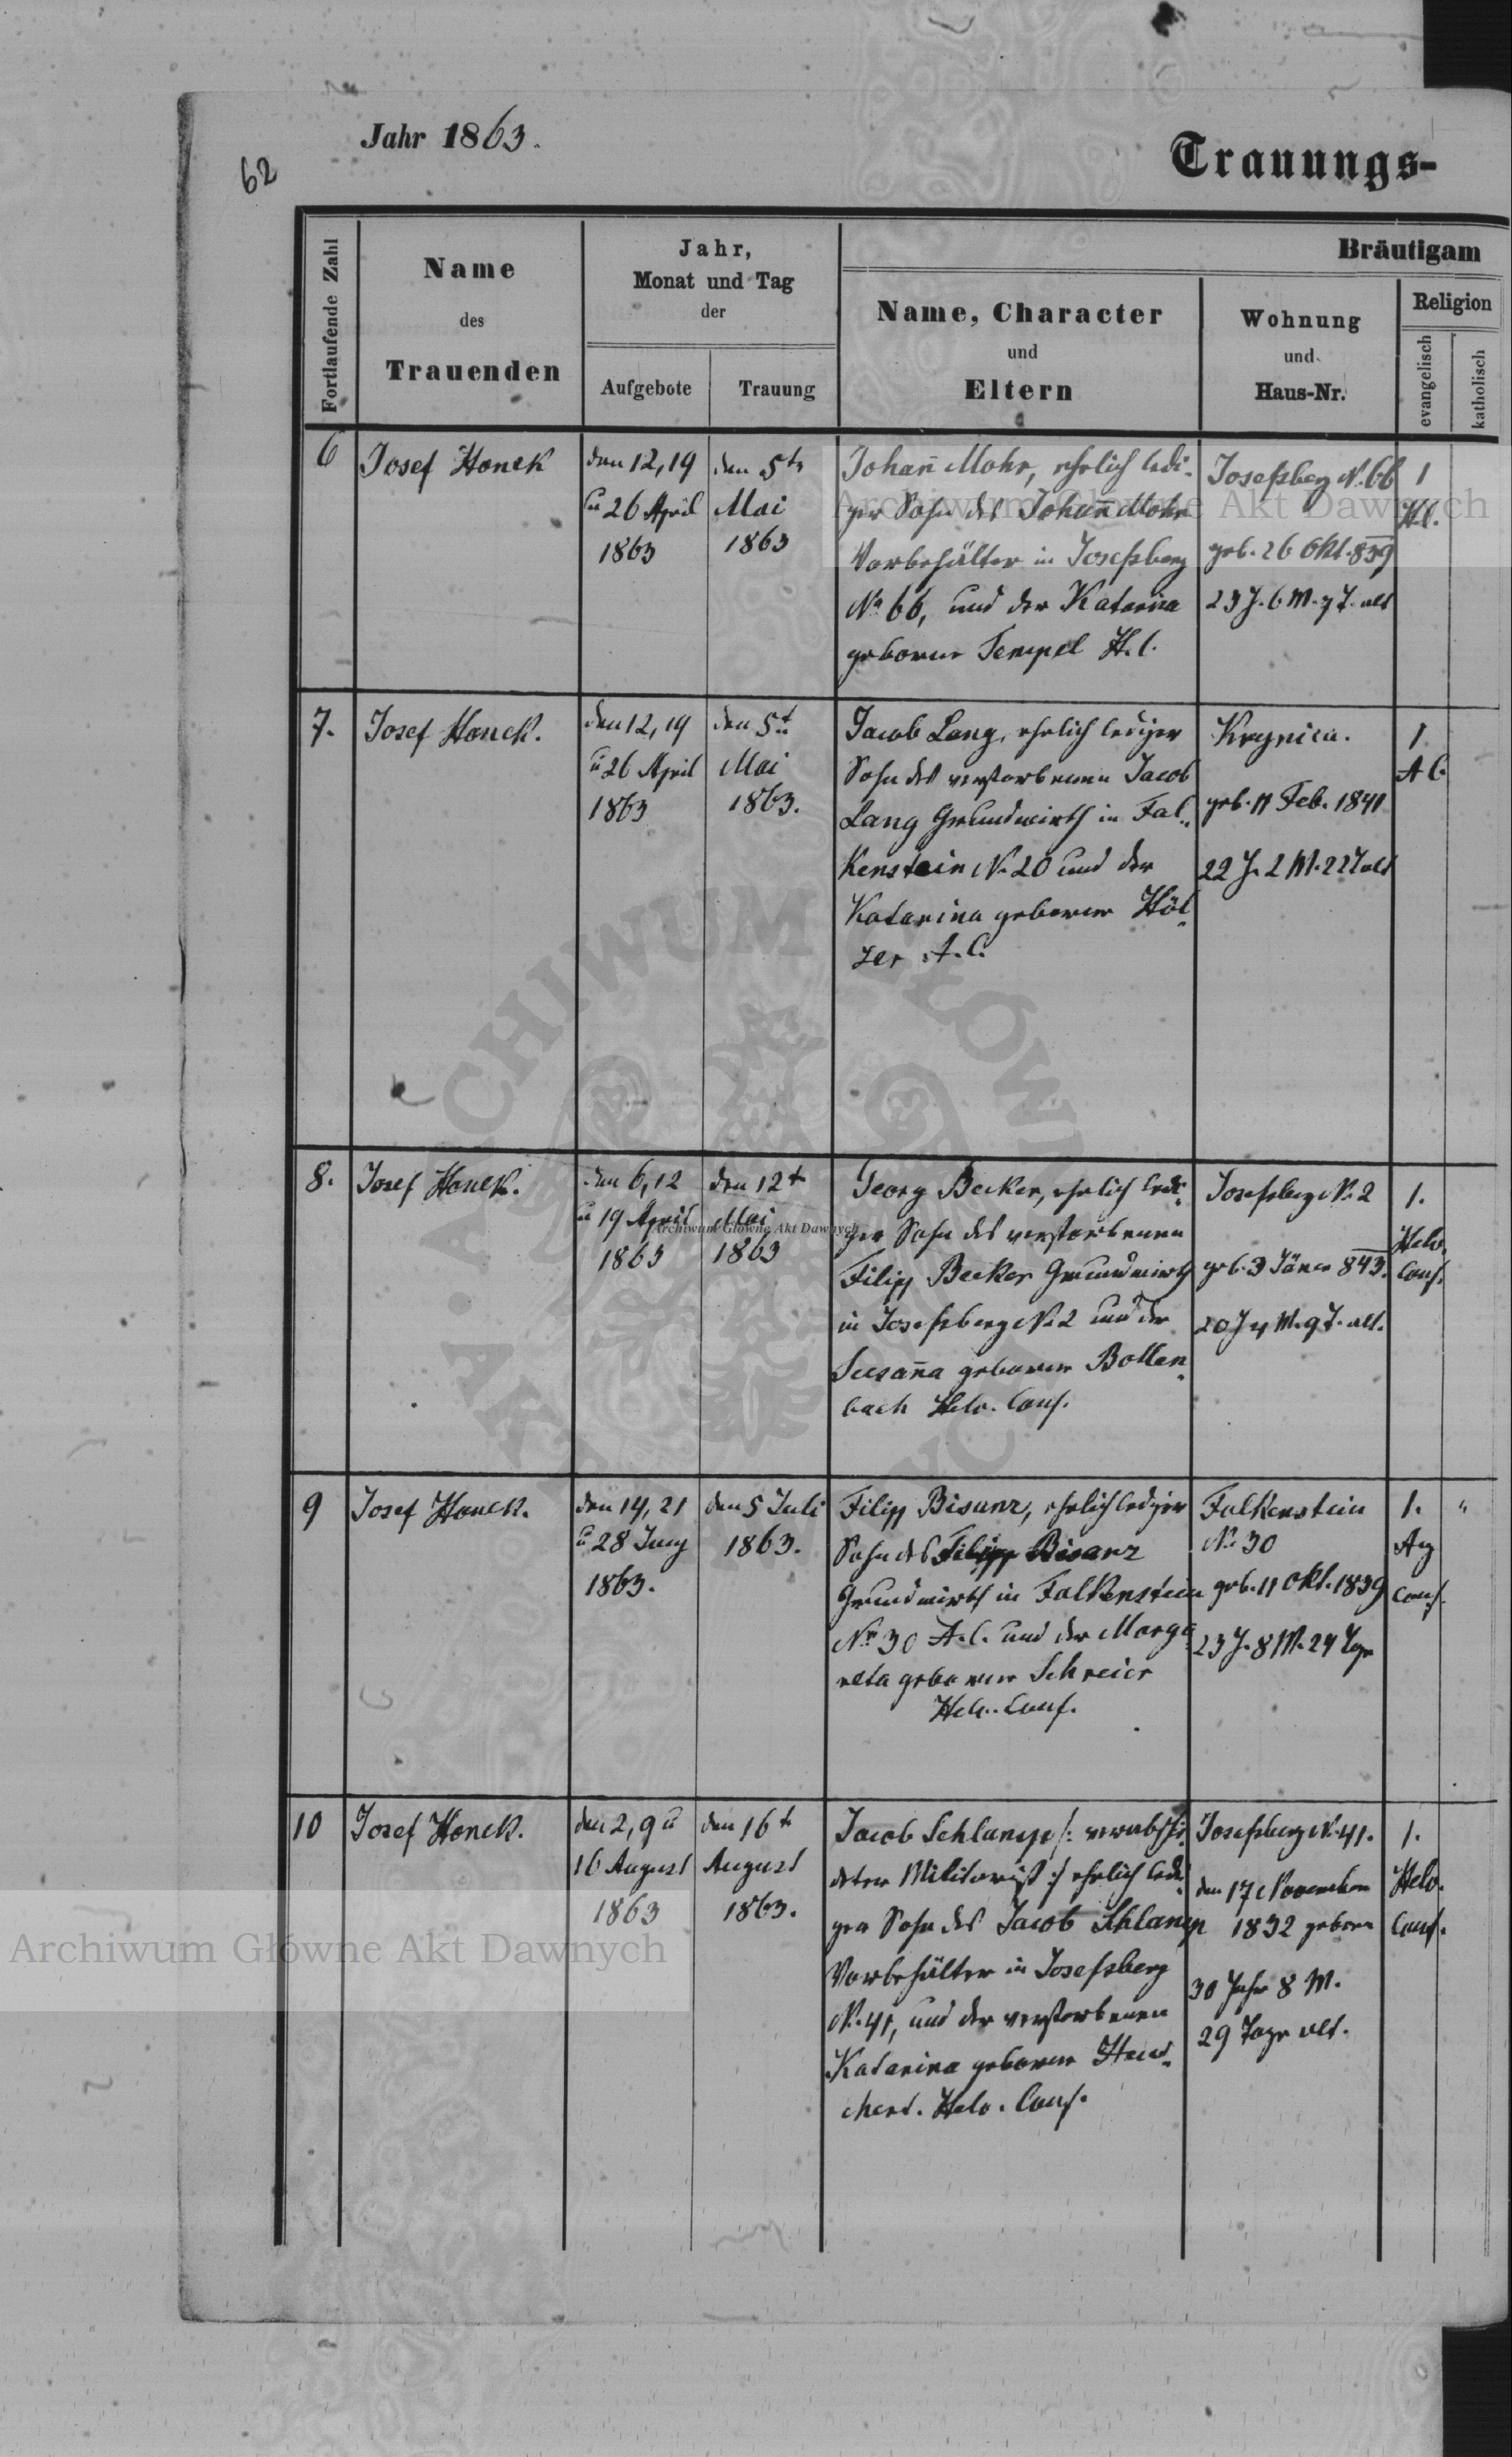 62
Jahr 1863.
Trauungs-
Fortlaufende Zahl
Name
des
Trauenden
Jahr,
Monat und Tag
der
Aufgebote
Trauung
Bräutigam
Name, Character
und
Eltern
Wohnung
und
Haus-Nr.
Religion
evangelisch
katholisch
6
Josef Honek
den 12, 19
u 26 April
1863
den 5t
Mai
1863
Johañ Mohr, ehrlich ledi-
ger Sohn des Johañ Mohr
Vorbehälter in Josefsberg
No 66, und der Katarina
geborne Tempel H.C.
Josefsberg N. 66
geb. 26 Okt. 839
23 J. 6 M. 7 T. alt
1
H.C.
7.
Josef Honek.
den 12, 19
u 26 April
1863
den 5t
Mai
1863.
Jacob Lang, ehrlich lediger
Sohn des verstorbenen Jacob
Lang Grundwirth in Fal-
kenstein N. 20 und der
Katarina geborne Höl-
zer A.C.
Krynica.
geb. 11 Feb. 1841
22 J. 2 M. 22 T alt
1
A C.
8.
Josef Honek.
den 6, 12
u 19 April
1863
den 12t
Mai
1863
Georg Becker, ehrlich ledi-
ger Sohn des verstorbenen
Filipp Becker Grundwirth
in Josefsberg N. 2 und der
Susaña geborne Bollen-
bach Helv. Conf.
Josefsberg N. 2
geb. 3 Jäner 843.
20 J 4 M. 9 T. alt.
1.
Helv.
Conf.
9
Josef Honek.
den 14, 21
u 28 Juny
1863.
den 5 Juli
1863.
Filipp Bisanz, ehrlich lediger
Sohn des Filipp Bisanz
Grundwirth in Falkenstein
Nr 30 A.C. und der Marga-
reta geborne Schreier
Helv. Conf.
Falkenstein
N. 30
geb. 11 Okt. 1839
23 J. 8 M. 24 Tge
1.
Ag
Conf.
"
10
Josef Honek.
den 2, 9 u
16 August
1863
den 16t
August
1863.
Jacob Schlamp /: verabschi-
deter Militarist :/ ehrlich ledi-
ger Sohn des Jacob Schlamp
Vorbehälter in Josefsberg
N. 41, und der verstorbenen
Katarina geborne
Helv. Conf.
Josefsberg N. 41.
den 17 November
1832 geboren
30 Jahr 8 M.
29 Tage alt.
1.
Helv.
Conf.
Archiwum Główne Akt Dawnych
Archiwum Główne Akt Dawnych
Archiwum Główne Akt Dawnych